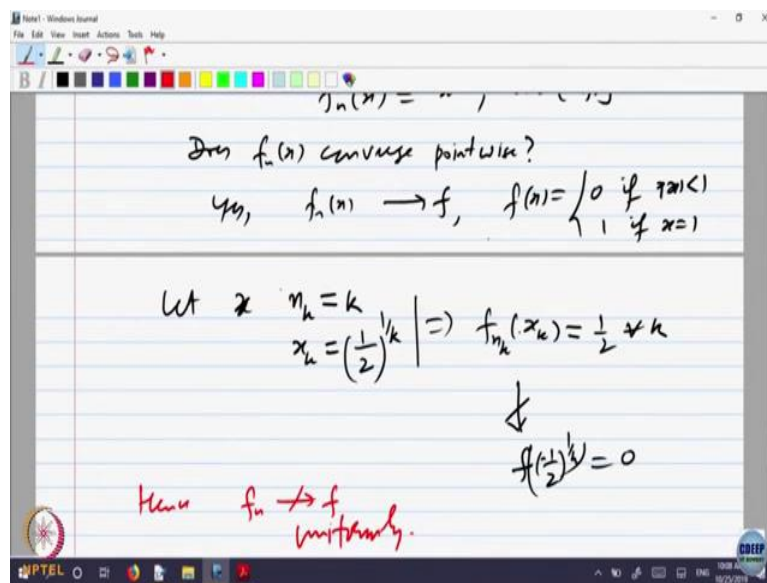 Note1 - Windows Journal
File Edit View Insert Actions Tools Help
B I
fn(x) =
Does fn(x) converge pointwise?
Yes, fn(x) → f, f(x) = { 0 if |x|<1
1 if x=1
Let x nk = k
xk = (1/2)^1/k | ⇒ fnk(xk) = 1/2 ∀ k
↓
f((1/2)^1/k) = 0
Hence fn ↛ f
uniformly.
NPTEL
CDEEP
ENG
10/25/2019